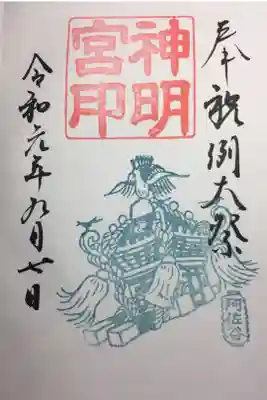 奉祝例大祭
神明
宮印
令和元年九月七日
阿佐谷